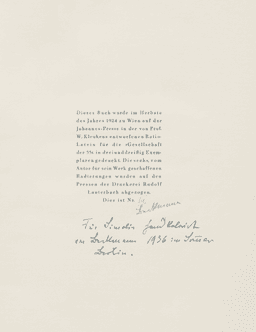 Dieses Buch wurde im Herbste
des Jahres 1924 zu Wien auf der
Johannes-Presse in der von Prof.
W. Klenkens entworfenen Ratio-
Latein für die «Gesellschaft
der 33» in dreiunddreißig Exem-
plaren gedruckt. Die sechs, vom
Autor für sein Werk geschaffenen
Radierungen wurden auf den
Pressen der Druckerei Rudolf
Lauterbach abgezogen.
Dies ist Nr.
Für
1936 im